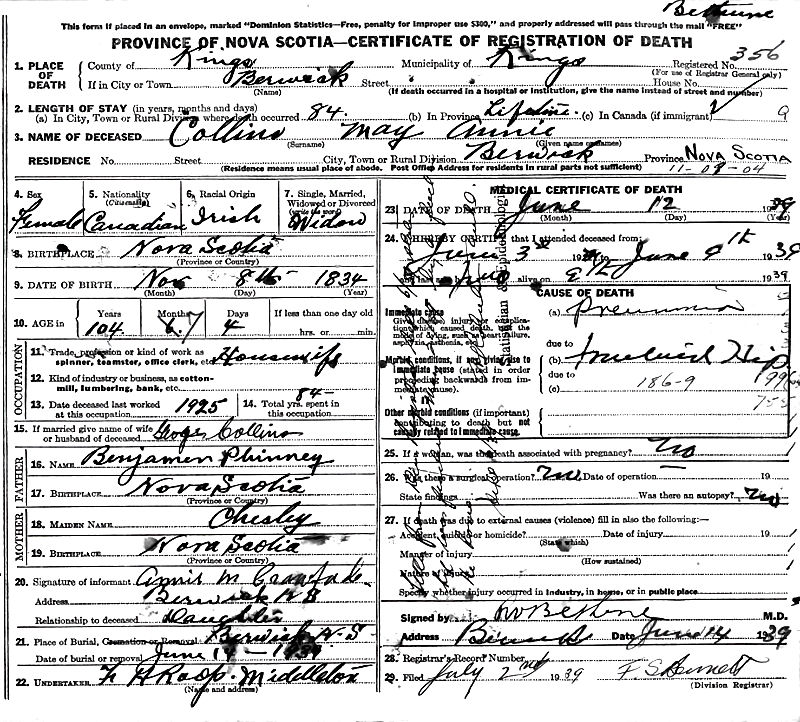 Bethune
This form if placed in an envelope, marked "Dominion Statistics—Free, penalty for improper use $300," and properly addressed will pass through the mail "FREE"
PROVINCE OF NOVA SCOTIA—CERTIFICATE OF REGISTRATION OF DEATH
1. PLACE OF DEATH County of Kings Municipality of Kings Registered No. 356
(For use of Registrar General only)
If in City or Town Berwick Street House No.
(Name) (If death occurred in a hospital or institution, give the name instead of street and number)
2. LENGTH OF STAY (in years, months and days)
(a) In City, Town or Rural Division where death occurred 84. (b) In Province Lifetime. (c) In Canada (if immigrant) 9
3. NAME OF DECEASED Collins May Annie
(Surname) (Given name or names)
RESIDENCE No. Street City, Town or Rural Division Berwick Province NOVA SCOTIA
(Residence means usual place of abode. Post Office Address for residents in rural parts not sufficient) 11-03-04
4. Sex Female
5. Nationality (Citizenship) Canadian
6. Racial Origin Irish
7. Single, Married, Widowed or Divorced (write the word) Widow
8. BIRTHPLACE Nova Scotia
(Province or Country)
9. DATE OF BIRTH Nov 8th 1834
(Month) (Day) (Year)
10. AGE in Years Months Days If less than one day old
104 6.7 4 hrs. or min.
OCCUPATION
11. Trade, profession or kind of work as spinner, teamster, office clerk, etc. Housewife
12. Kind of industry or business, as cotton-mill, lumbering, bank, etc.
13. Date deceased last worked at this occupation 1925 14. Total yrs. spent in this occupation 84
15. If married give name of wife or husband of deceased George Collins
FATHER
16. NAME Benjamin Phinney
17. BIRTHPLACE Nova Scotia
(Province or Country)
MOTHER
18. MAIDEN NAME Chesley
19. BIRTHPLACE Nova Scotia
(Province or Country)
20. Signature of informant Annie M
Address Berwick N S
Relationship to deceased Daughter
21. Place of Burial, Cremation or Removal Berwick N-S
Date of burial or removal June 14 - 1939
22. UNDERTAKER Middleton
(Name and address)
MEDICAL CERTIFICATE OF DEATH
23. DATE OF DEATH June 12 1939
(Month) (Day) (Year)
24. I HEREBY CERTIFY that I attended deceased from:
June 3rd 19 to June 9th 1939
last alive on 9th 1939
CAUSE OF DEATH
Immediate cause (a) Pneumonia
Give disease, injury or complication which caused death, not the mode of dying, such as heart failure, asphyxia, asthenia, etc.
due to
Morbid conditions, if any, giving rise to immediate cause (stated in order proceeding backwards from immediate cause). (b) Fractured Hip
due to
(c) 186-9
Other morbid conditions (if important) contributing to death but not causally related to immediate cause.
25. If a woman, was the death associated with pregnancy? No
26. Was there a surgical operation? No Date of operation 19
State findings Was there an autopsy? No
27. If death was due to external causes (violence) fill in also the following:—
Accident, suicide or homicide Date of injury 19
(State which)
Manner of injury
(How sustained)
Nature of injury
Specify whether injury occurred in industry, in home, or in public place
Signed by Bethune M.D.
Address Berwick Date June 14 1939
28. Registrar's Record Number
29. Filed July 2nd 1939 F. S.
(Division Registrar)